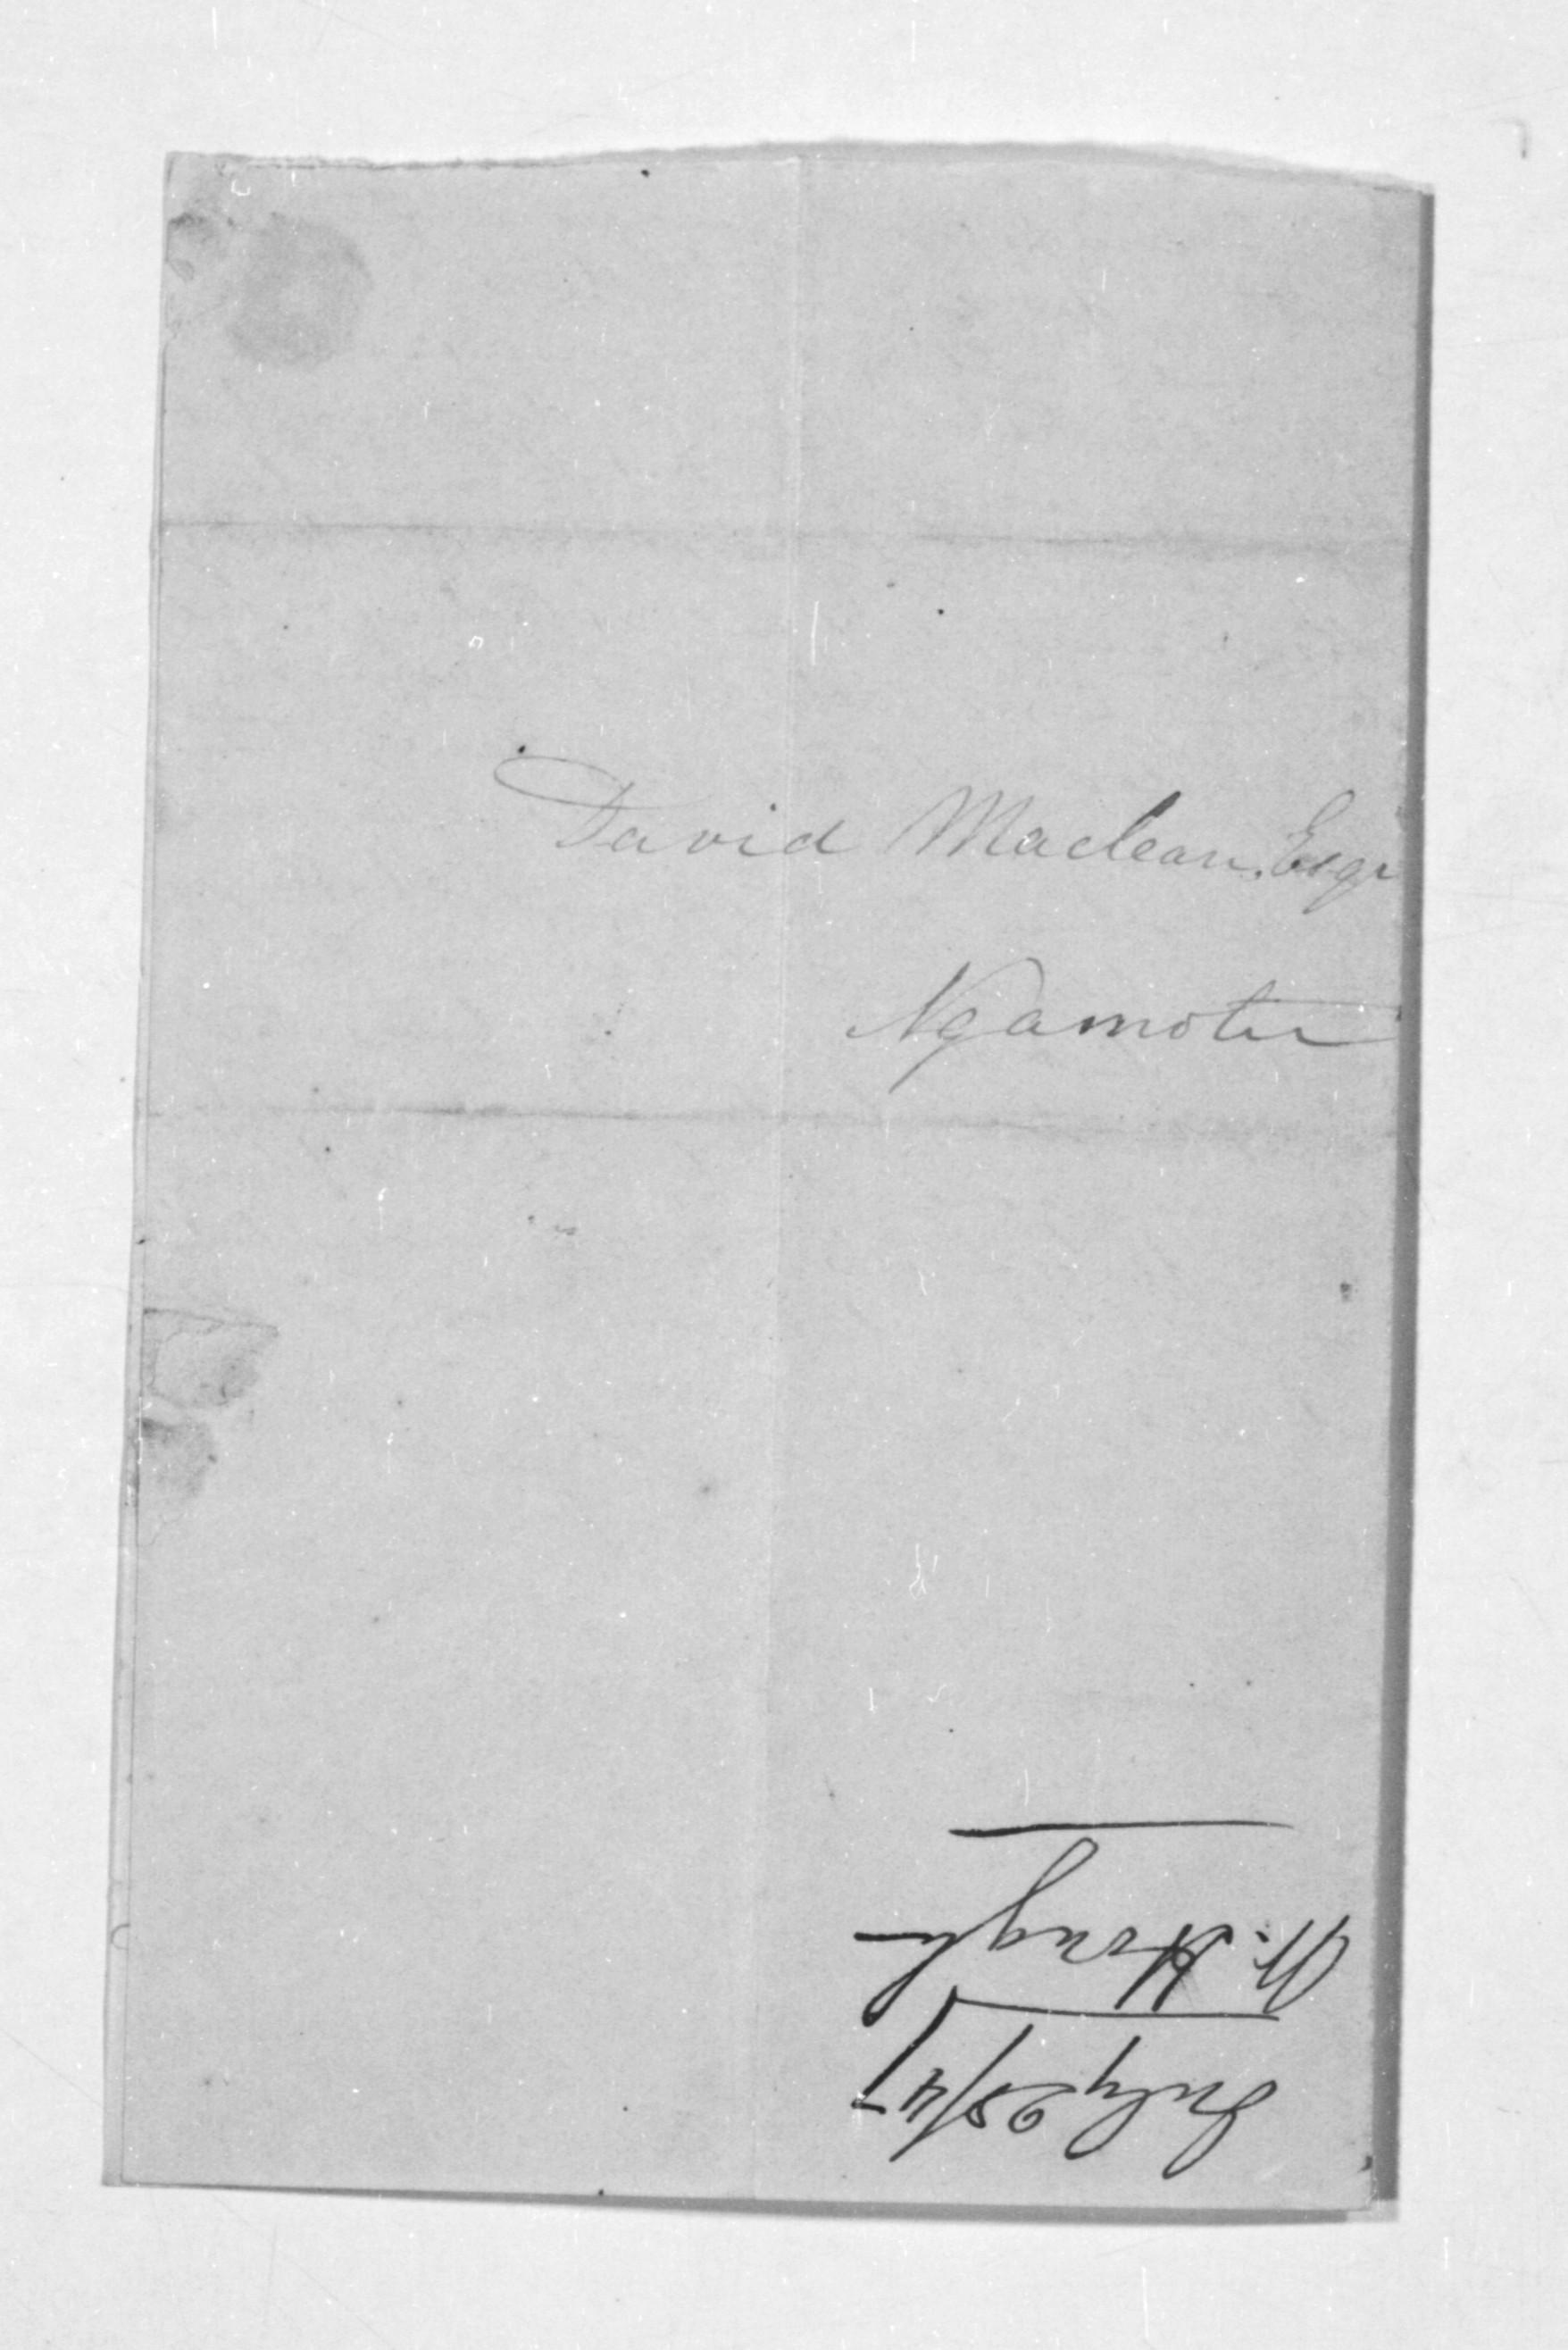 David Maclean. Esqr
Ngamotu
July 28/47
W. Hough